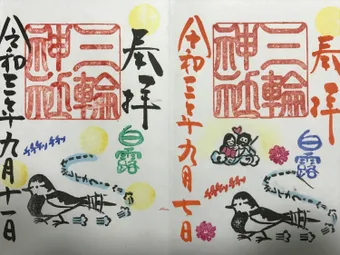 奉拝
三輪
神社
白露
令和三年九月七日
奉拝
三輪
神社
白露
令和三年九月十一日